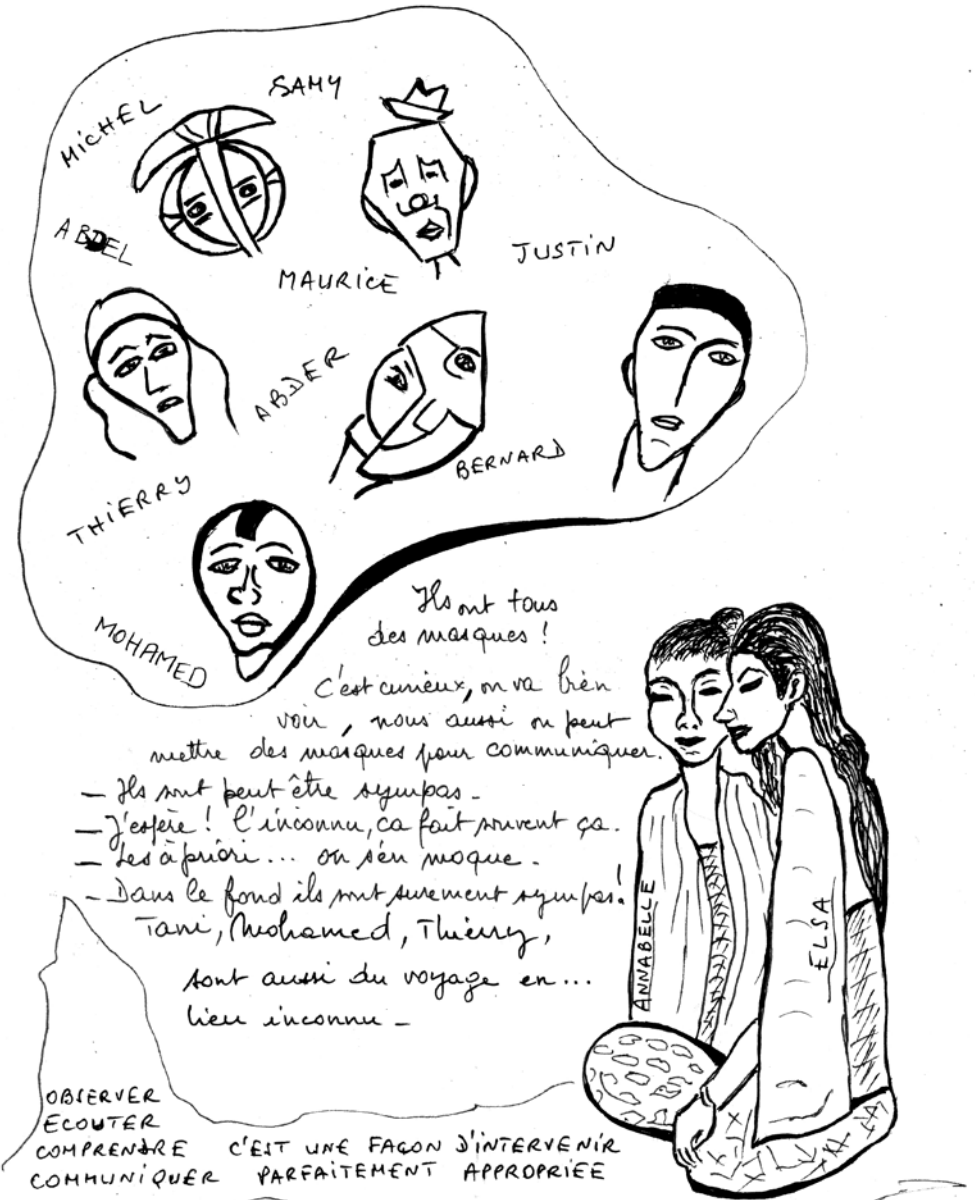 MICHEL
SAMY
ABDEL
MAURICE
JUSTIN
ABDER
BERNARD
THIERRY
MOHAMED
Ils ont tous
des masques !
C'est curieux, on va bien
voir, nous aussi on peut
mettre des masques pour communiquer.
- Ils sont peut être sympas -
- J'espère ! l'inconnu, ca fait souvent ça.
- Les à priori... on s'en moque -
- Dans le fond ils sont surement sympas !
Tani, Mohamed, Thierry,
sont aussi du voyage en...
lieu inconnu -
ANNABELLE
ELSA
OBSERVER
ECOUTER
COMPRENDRE C'EST UNE FAÇON D'INTERVENIR
COMMUNIQUER PARFAITEMENT APPROPRIEE